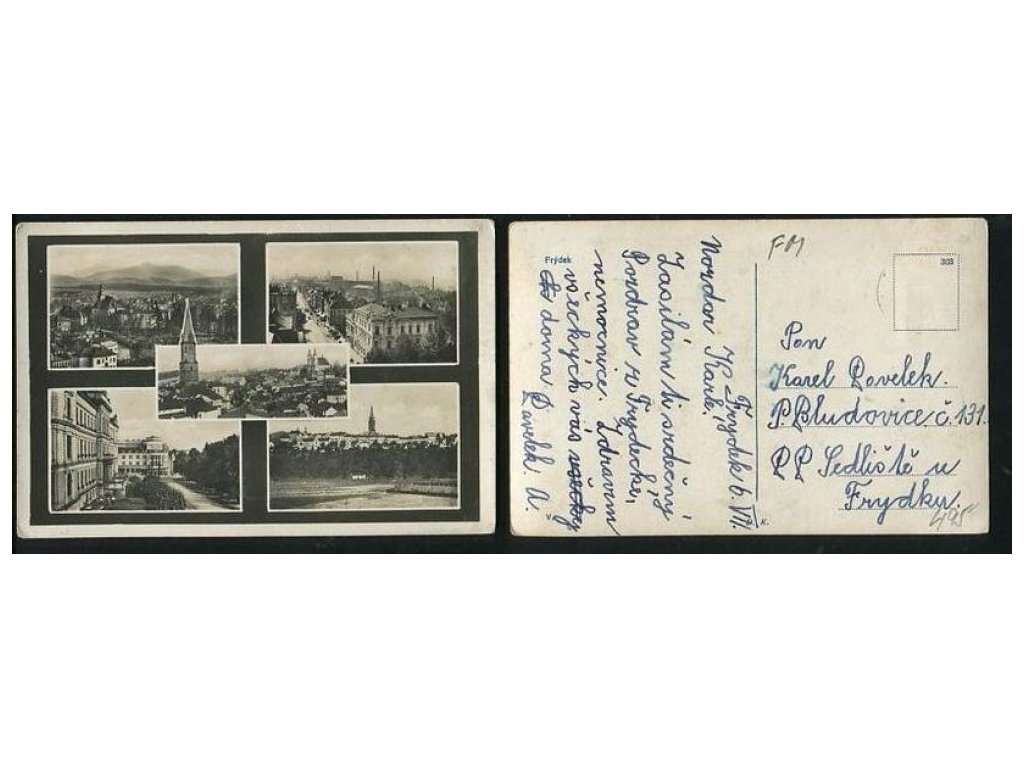 Frýdek
FM
303
V Frýdek 6. VII.
Nazdar Karle!
Zasílám ti srdečný
Pozdrav z Frydecké
nemocnice. Zdravim
všeckých vás
doma Pavelek. A.
V
K.
Pan
Karel Pavelek.
P. Bludovice č. 131.
P.P. Sedliště u
Frydku.
495